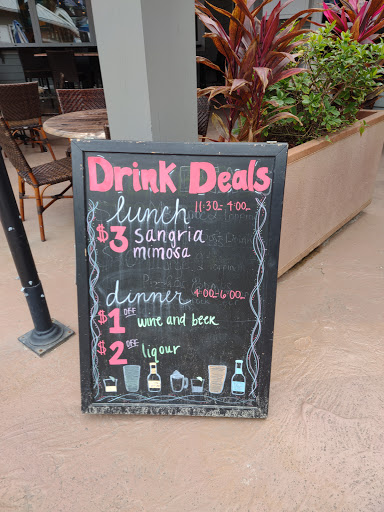 Drink Deals
lunch 11:30-4:00
$3 sangria
mimosa
dinner 4:00-6:00
$1 OFF wine and beer
$2 OFF liqour